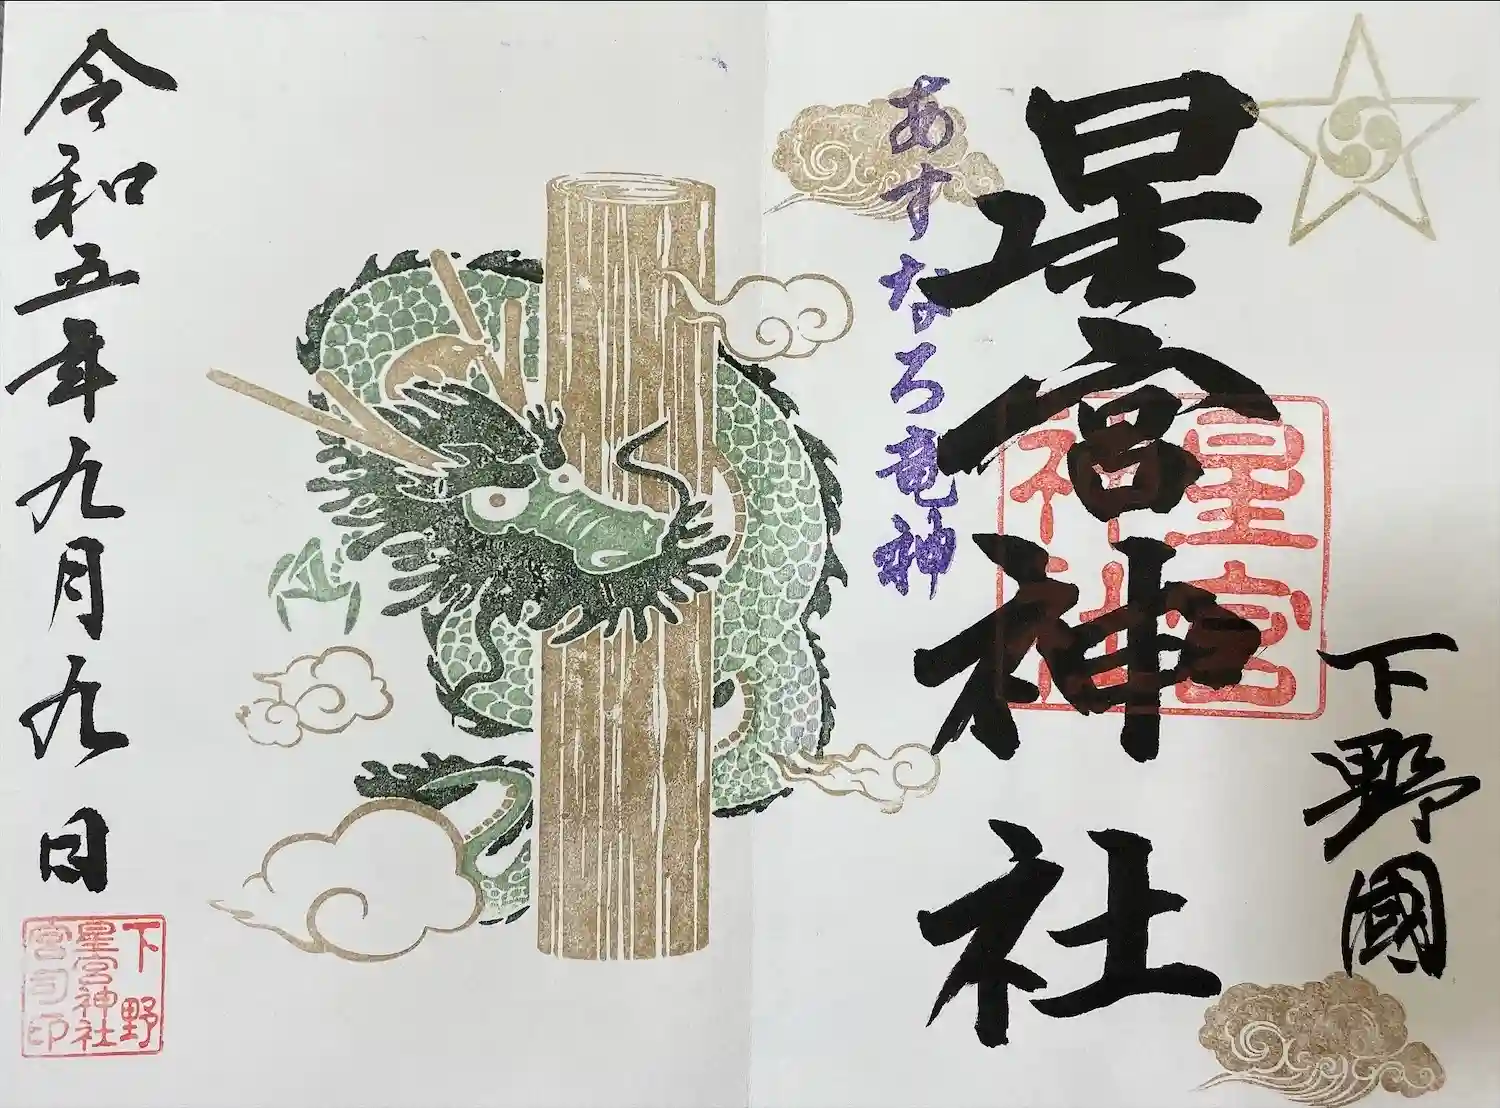 下野國
星宮神社
星宮
神社
あすなろ竜神
令和五年九月九日
下野
星宮神社
宮司印